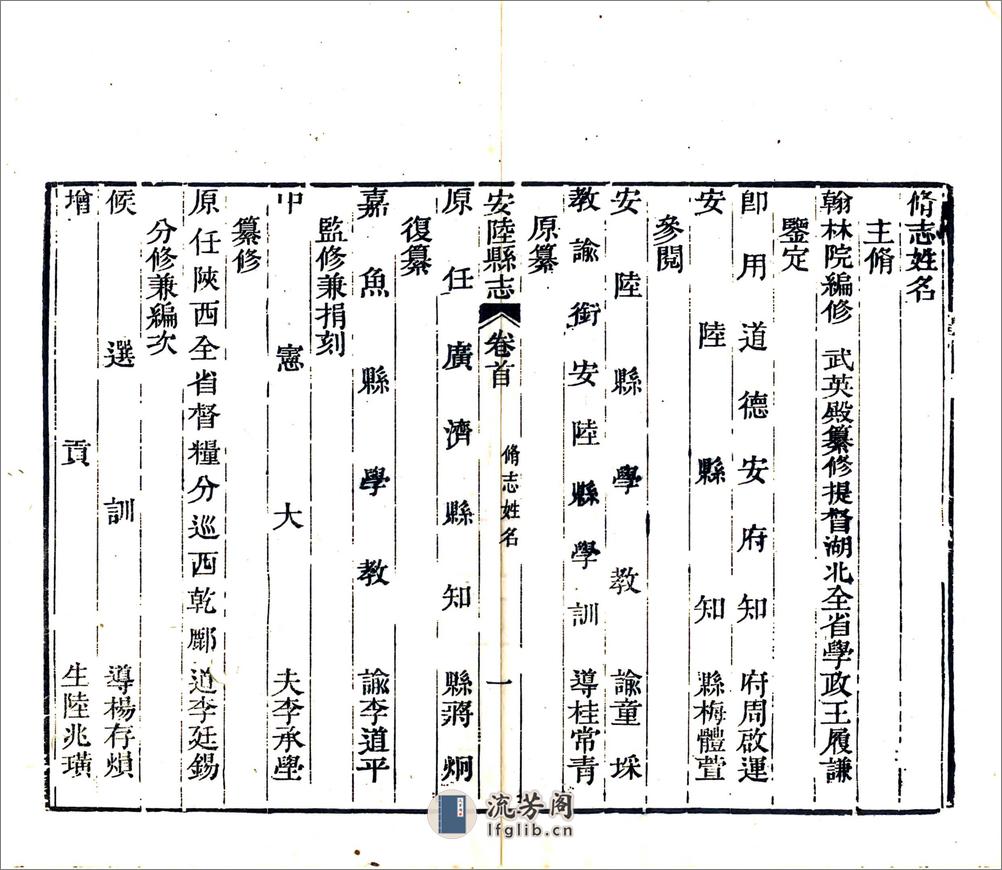 脩志姓名
主脩
翰林院編修 武英殿纂修提督湖北全省學政王履謙
鑒定
即用道德安府知府周啟運
安陸縣知縣梅體萱
參閱
安陸縣學教諭童埰
教諭銜安陸縣學訓導桂常青
原纂
安陸縣志 卷首 脩志姓名 一
原任廣濟縣知縣蔣炯
復纂
嘉魚縣學教諭李道平
監修兼捐刻
中憲大夫李承學
纂修
原任陝西全省督糧分巡西乾鄜道李廷錫
分修兼編次
候選訓導楊存煩
增貢生陸兆璜
流芳阁
lfglib.cn